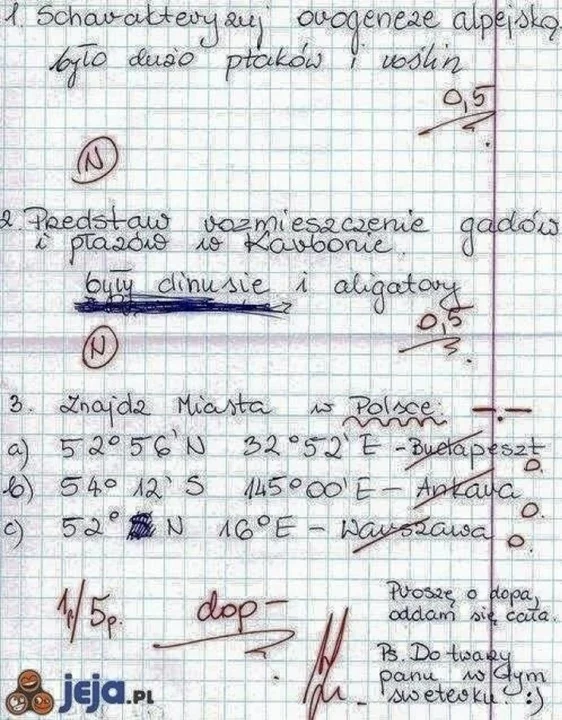 1. Scharakteryzuj orogenezę alpejską.
było dużo ptaków i roślin
0,5
N
2. Przedstaw rozmieszczenie gadów
i płazów w Karbonie.
były dinusie i aligatory
0,5
N
3. Znajdz Miasta w Polsce:
a) 52° 56' N 32° 52' E - Budapeszt
0.
b) 54° 12' S 145° 00' E - Ankara
0.
c) 52° N 16° E - Warszawa
0.
1/5p.
dop-
Proszę o dopa,
oddam się cała.
Ps. Do twarzy
panu w tym
sweterku. :)
jeja.PL